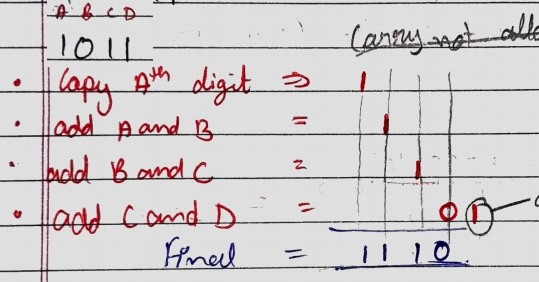 A B C D
1011
Carry not
• Copy Ath digit ⇒ 1
• add A and B = 1
• add B and C = 1
• add C and D = 0 1
Final = 1110